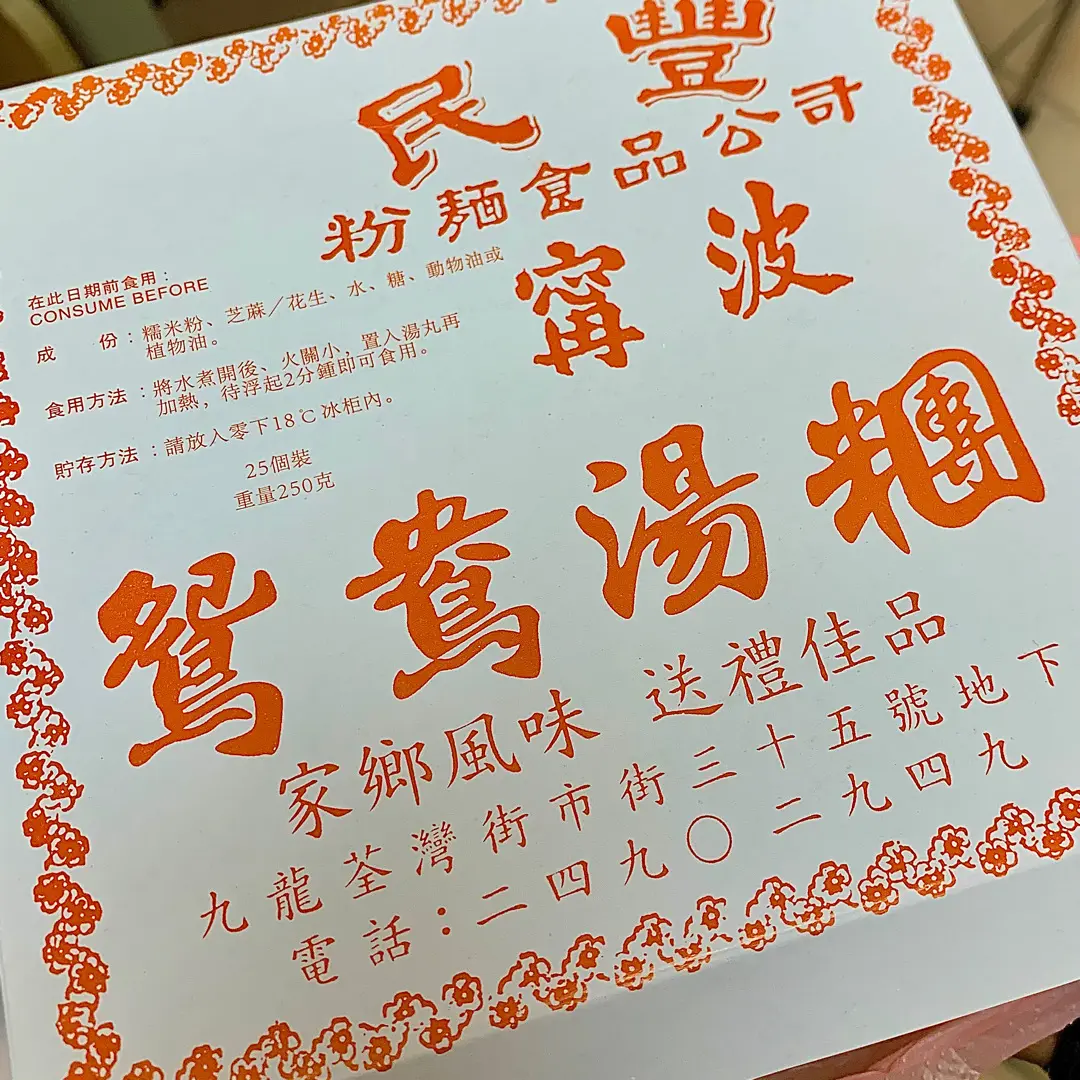 民豐
粉麵食品公司
甯波
鴛鴦湯糰
家鄉風味 送禮佳品
九龍荃灣街市街三十五號地下
電話：二四九〇二九四九
在此日期前食用：
CONSUME BEFORE
成 份：糯米粉、芝蔴／花生、水、糖、動物油或
植物油。
食用方法：將水煮開後、火關小，置入湯丸再
加熱，待浮起2分鍾即可食用。
貯存方法：請放入零下18℃冰柜內。
25個裝
重量250克